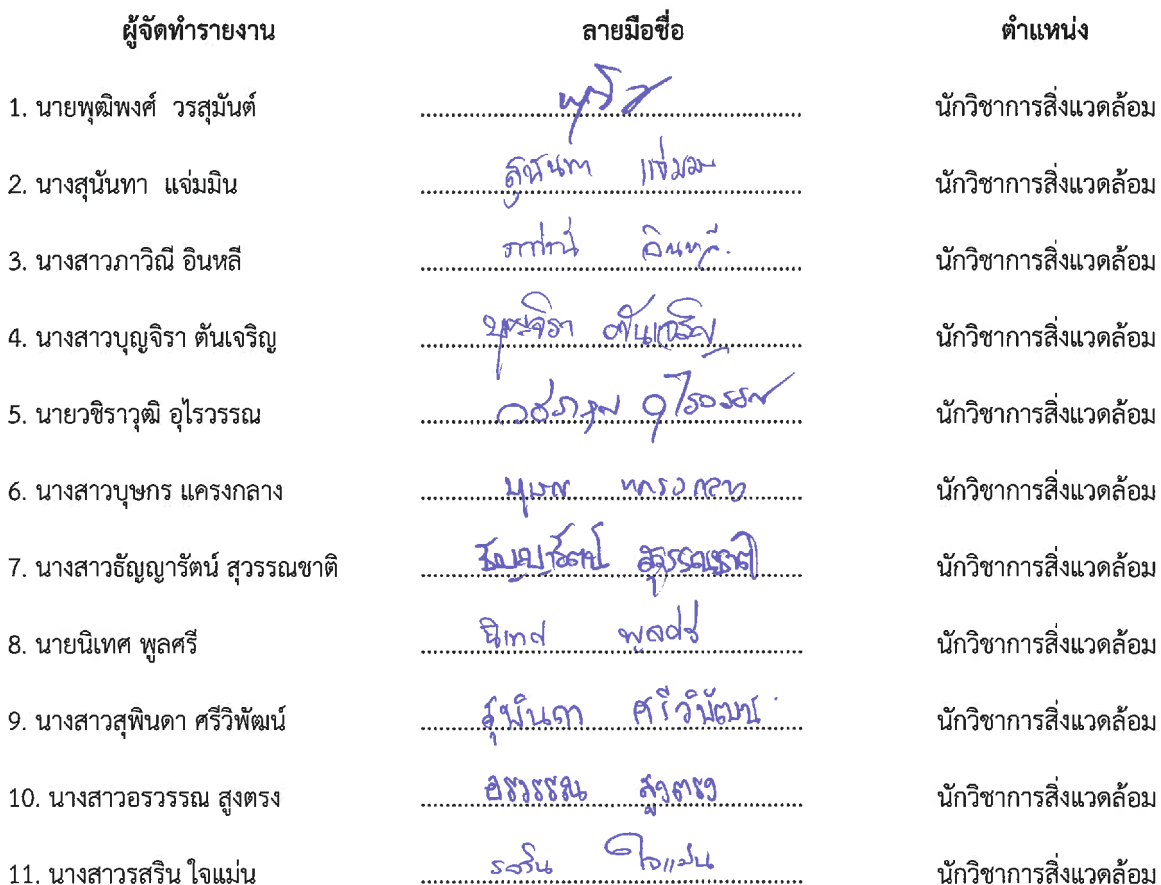 ผู้จัดทำรายงาน ลายมือชื่อ ตำแหน่ง
1. นายพุฒิพงศ์ วรสุมันต์ นักวิชาการสิ่งแวดล้อม
2. นางสุนันทา แจ่มมิน สุนันทา แจ่มมิน นักวิชาการสิ่งแวดล้อม
3. นางสาวภาวิณี อินหลี ภาวิณี อินหลี นักวิชาการสิ่งแวดล้อม
4. นางสาวบุญจิรา ตันเจริญ บุญจิรา ตันเจริญ นักวิชาการสิ่งแวดล้อม
5. นายวชิราวุฒิ อุไรวรรณ นักวิชาการสิ่งแวดล้อม
6. นางสาวบุษกร แครงกลาง บุษกร แครงกลาง นักวิชาการสิ่งแวดล้อม
7. นางสาวธัญญารัตน์ สุวรรณชาติ ธัญญารัตน์ สุวรรณชาติ นักวิชาการสิ่งแวดล้อม
8. นายนิเทศ พูลศรี นิเทศ พูลศรี นักวิชาการสิ่งแวดล้อม
9. นางสาวสุพินดา ศรีวิพัฒน์ สุพินดา ศรีวิพัฒน์ นักวิชาการสิ่งแวดล้อม
10. นางสาวอรวรรณ สูงตรง อรวรรณ สูงตรง นักวิชาการสิ่งแวดล้อม
11. นางสาวรสริน ใจแม่น รสริน ใจแม่น นักวิชาการสิ่งแวดล้อม